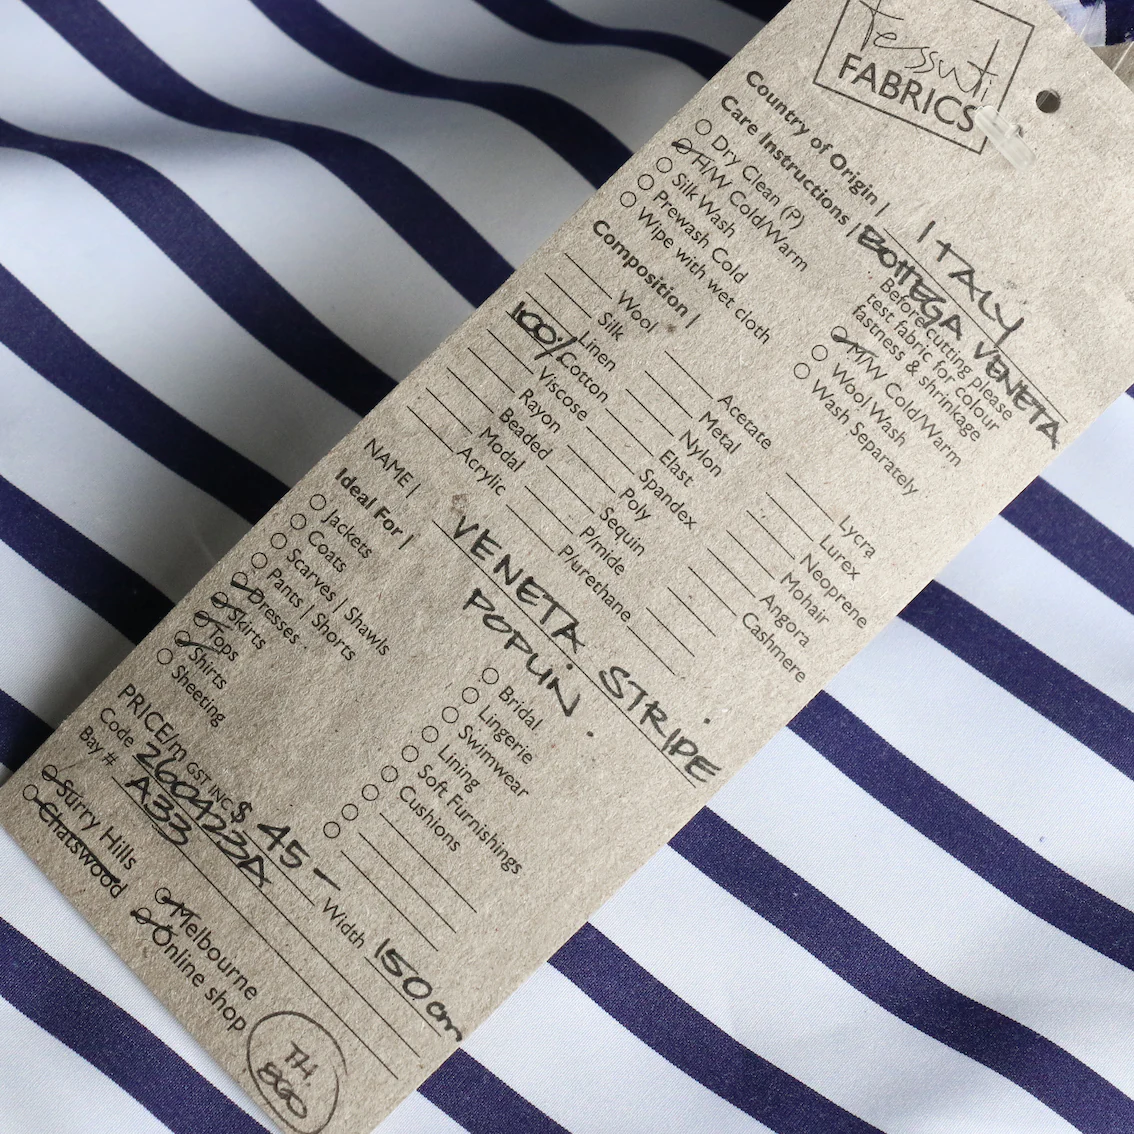 Tessuti
FABRICS
Country of Origin | ITALY
Care Instructions | BOTTEGA VENETA
Dry Clean (P)
H/W Cold/Warm
Silk Wash
Prewash Cold
Wipe with wet cloth
Before cutting please
test fabric for colour
fastness & shrinkage
M/W Cold/Warm
Wool Wash
Wash Separately
Composition |
Wool
Silk
Linen
100% Cotton
Viscose
Rayon
Beaded
Modal
Acrylic
Acetate
Metal
Nylon
Elast
Spandex
Poly
Sequin
P/mide
P/urethane
Lycra
Lurex
Neoprene
Mohair
Angora
Cashmere
NAME | VENETA STRIPE
POPLIN.
Ideal For |
Jackets
Coats
Scarves | Shawls
Pants | Shorts
Dresses
Skirts
Tops
Shirts
Sheeting
Bridal
Lingerie
Swimwear
Lining
Soft Furnishings
Cushions
PRICE/m GST INC $ 45- Width 150cm
Code 260423A
Bay # A33
Surry Hills
Chatswood
Melbourne
Online shop